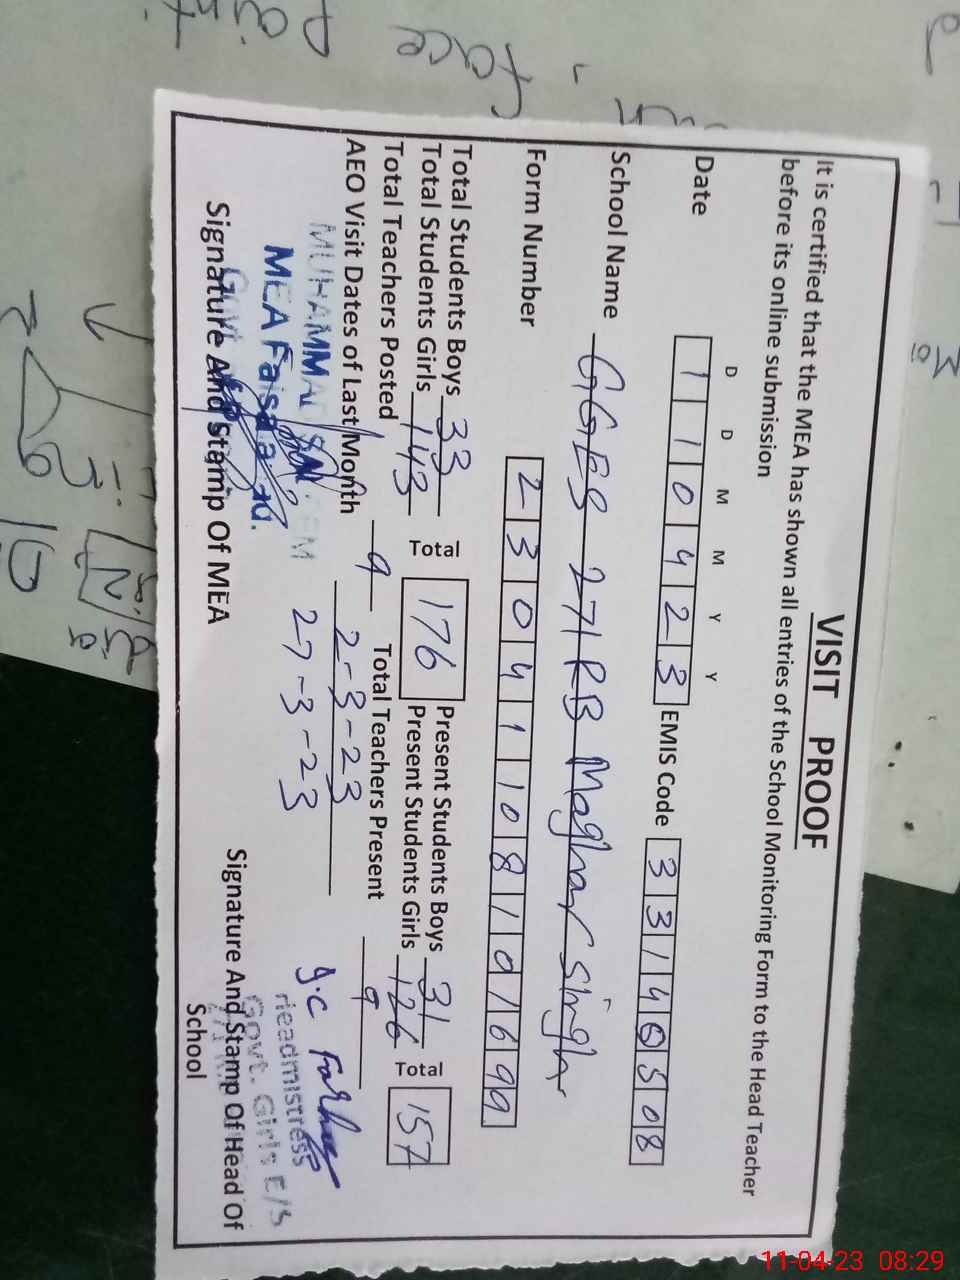 VISIT PROOF
It is certified that the MEA has shown all entries of the School Monitoring Form to the Head Teacher
before its online submission
D D M M Y Y
Date 1 1 0 4 2 3 EMIS Code 3 3 1 4 0 5 0 8
School Name GGES 271 RB Maghar Singh
Form Number 2 3 0 4 1 1 0 8 1 0 1 6 9 9
Total Students Boys 33 Total 176 Present Students Boys 31 Total 157
Total Students Girls 143 Present Students Girls 126
Total Teachers Posted 9 Total Teachers Present 9
AEO Visit Dates of Last Month 2-3-23
27-3-23
MUHAMMAD
MEA
I.c Farha
Headmistress
Govt. Girls E/S
Signature And Stamp Of MEA
Signature And Stamp Of Head Of
School
face
11-04-23 08:29